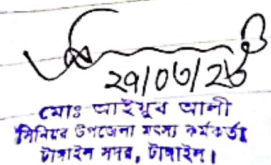 ২৭/০৩/২৩
মোঃ আইয়ুব আলী
সিনিয়র উপজেলা মৎস্য কর্মকর্তা
টাঙ্গাইল সদর, টাঙ্গাইল।